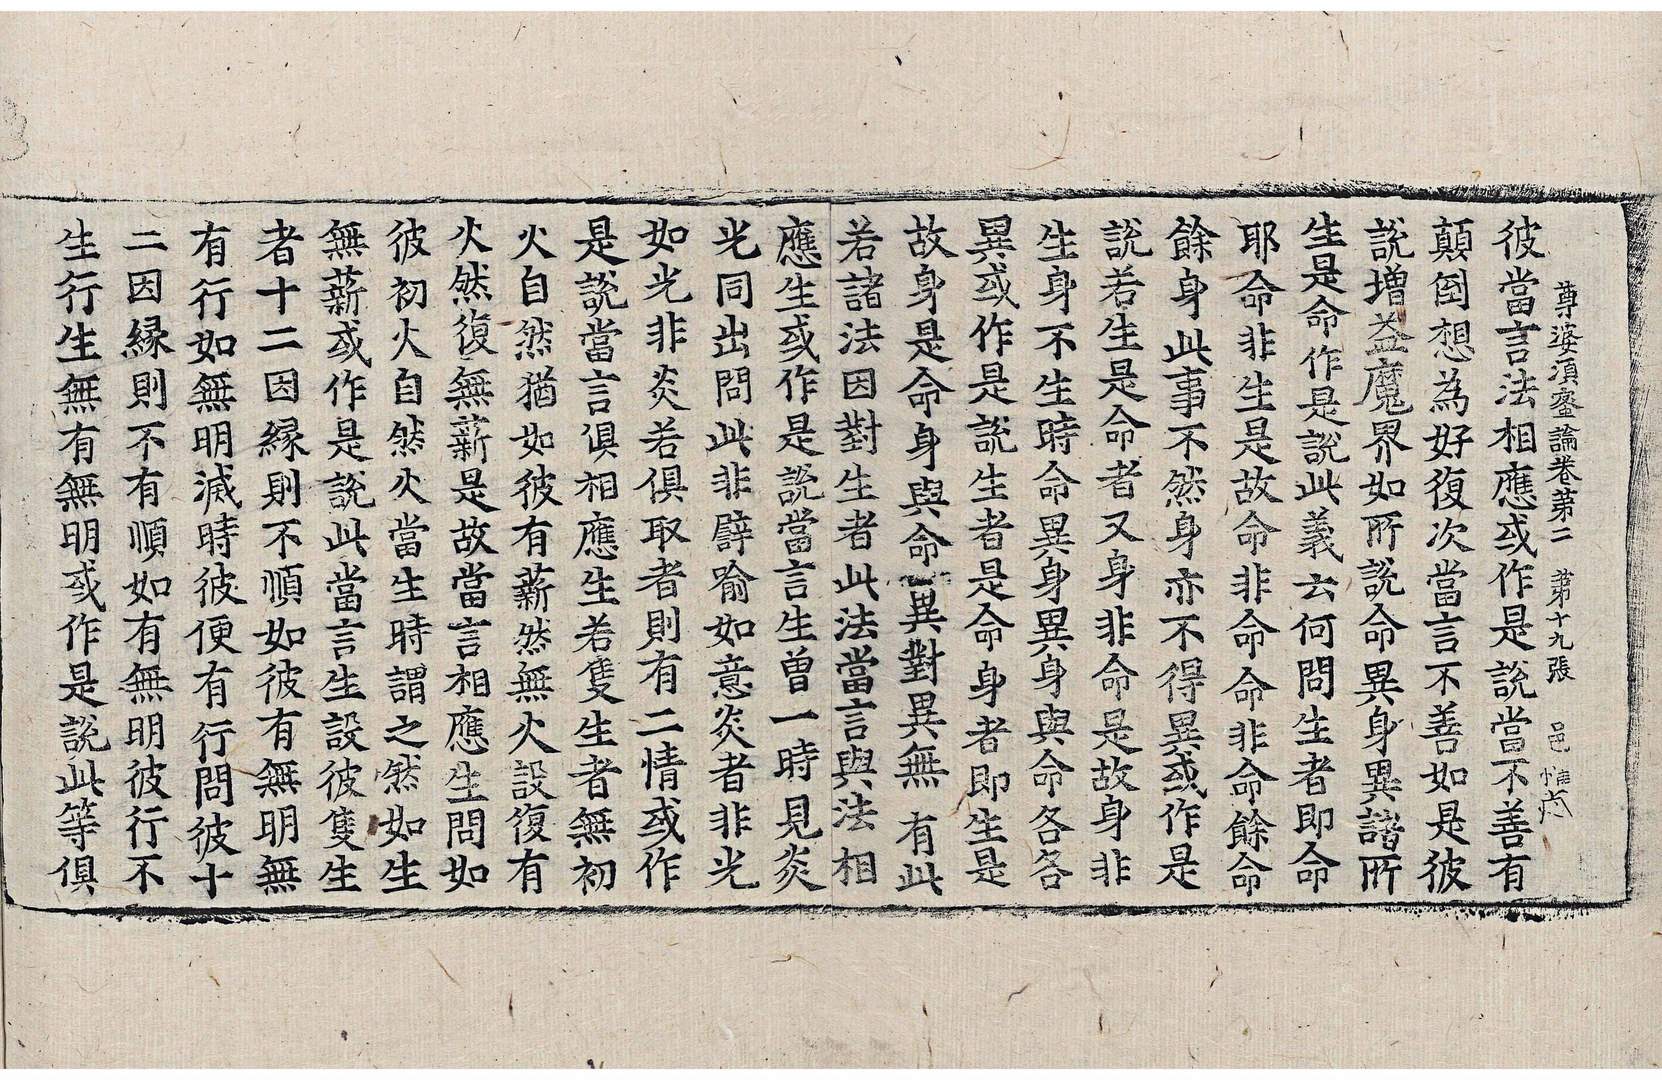 尊婆湏蜜論卷苐二 苐十九張 邑
彼當言法相應或作是說當言不善有
顛倒想為好復次當言不善如是彼
說增益魔界如所說命異身異諸所
生是命作是說此義云何問生者即命
耶命非生是故命非命命非命餘命
餘身此事不然身亦不得異或作是
說若生是命者又身非命是故身非
生身不生時命異身異身與命各各
異或作是說生者是命身者即生是
故身是命身與命一異對異無 有此
若諸法因對生者此法當言與法相
應生或作是說當言生曽一時見炎
光同出問此非譬喻如意炎者非光
如光非炎若俱取者則有二情或作
是說當言俱相應生若隻生者無初
火自然猶如彼有薪然無火設復有
火然復無薪是故當言相應生問如
彼初火自然火當生時謂之然如生
無薪或作是說此當言生設彼隻生
者十二因縁則不順如彼有無明無
有行如無明滅時彼便有行問彼十
二因縁則不有順如有無明彼行不
生行生無有無明或作是說此等俱